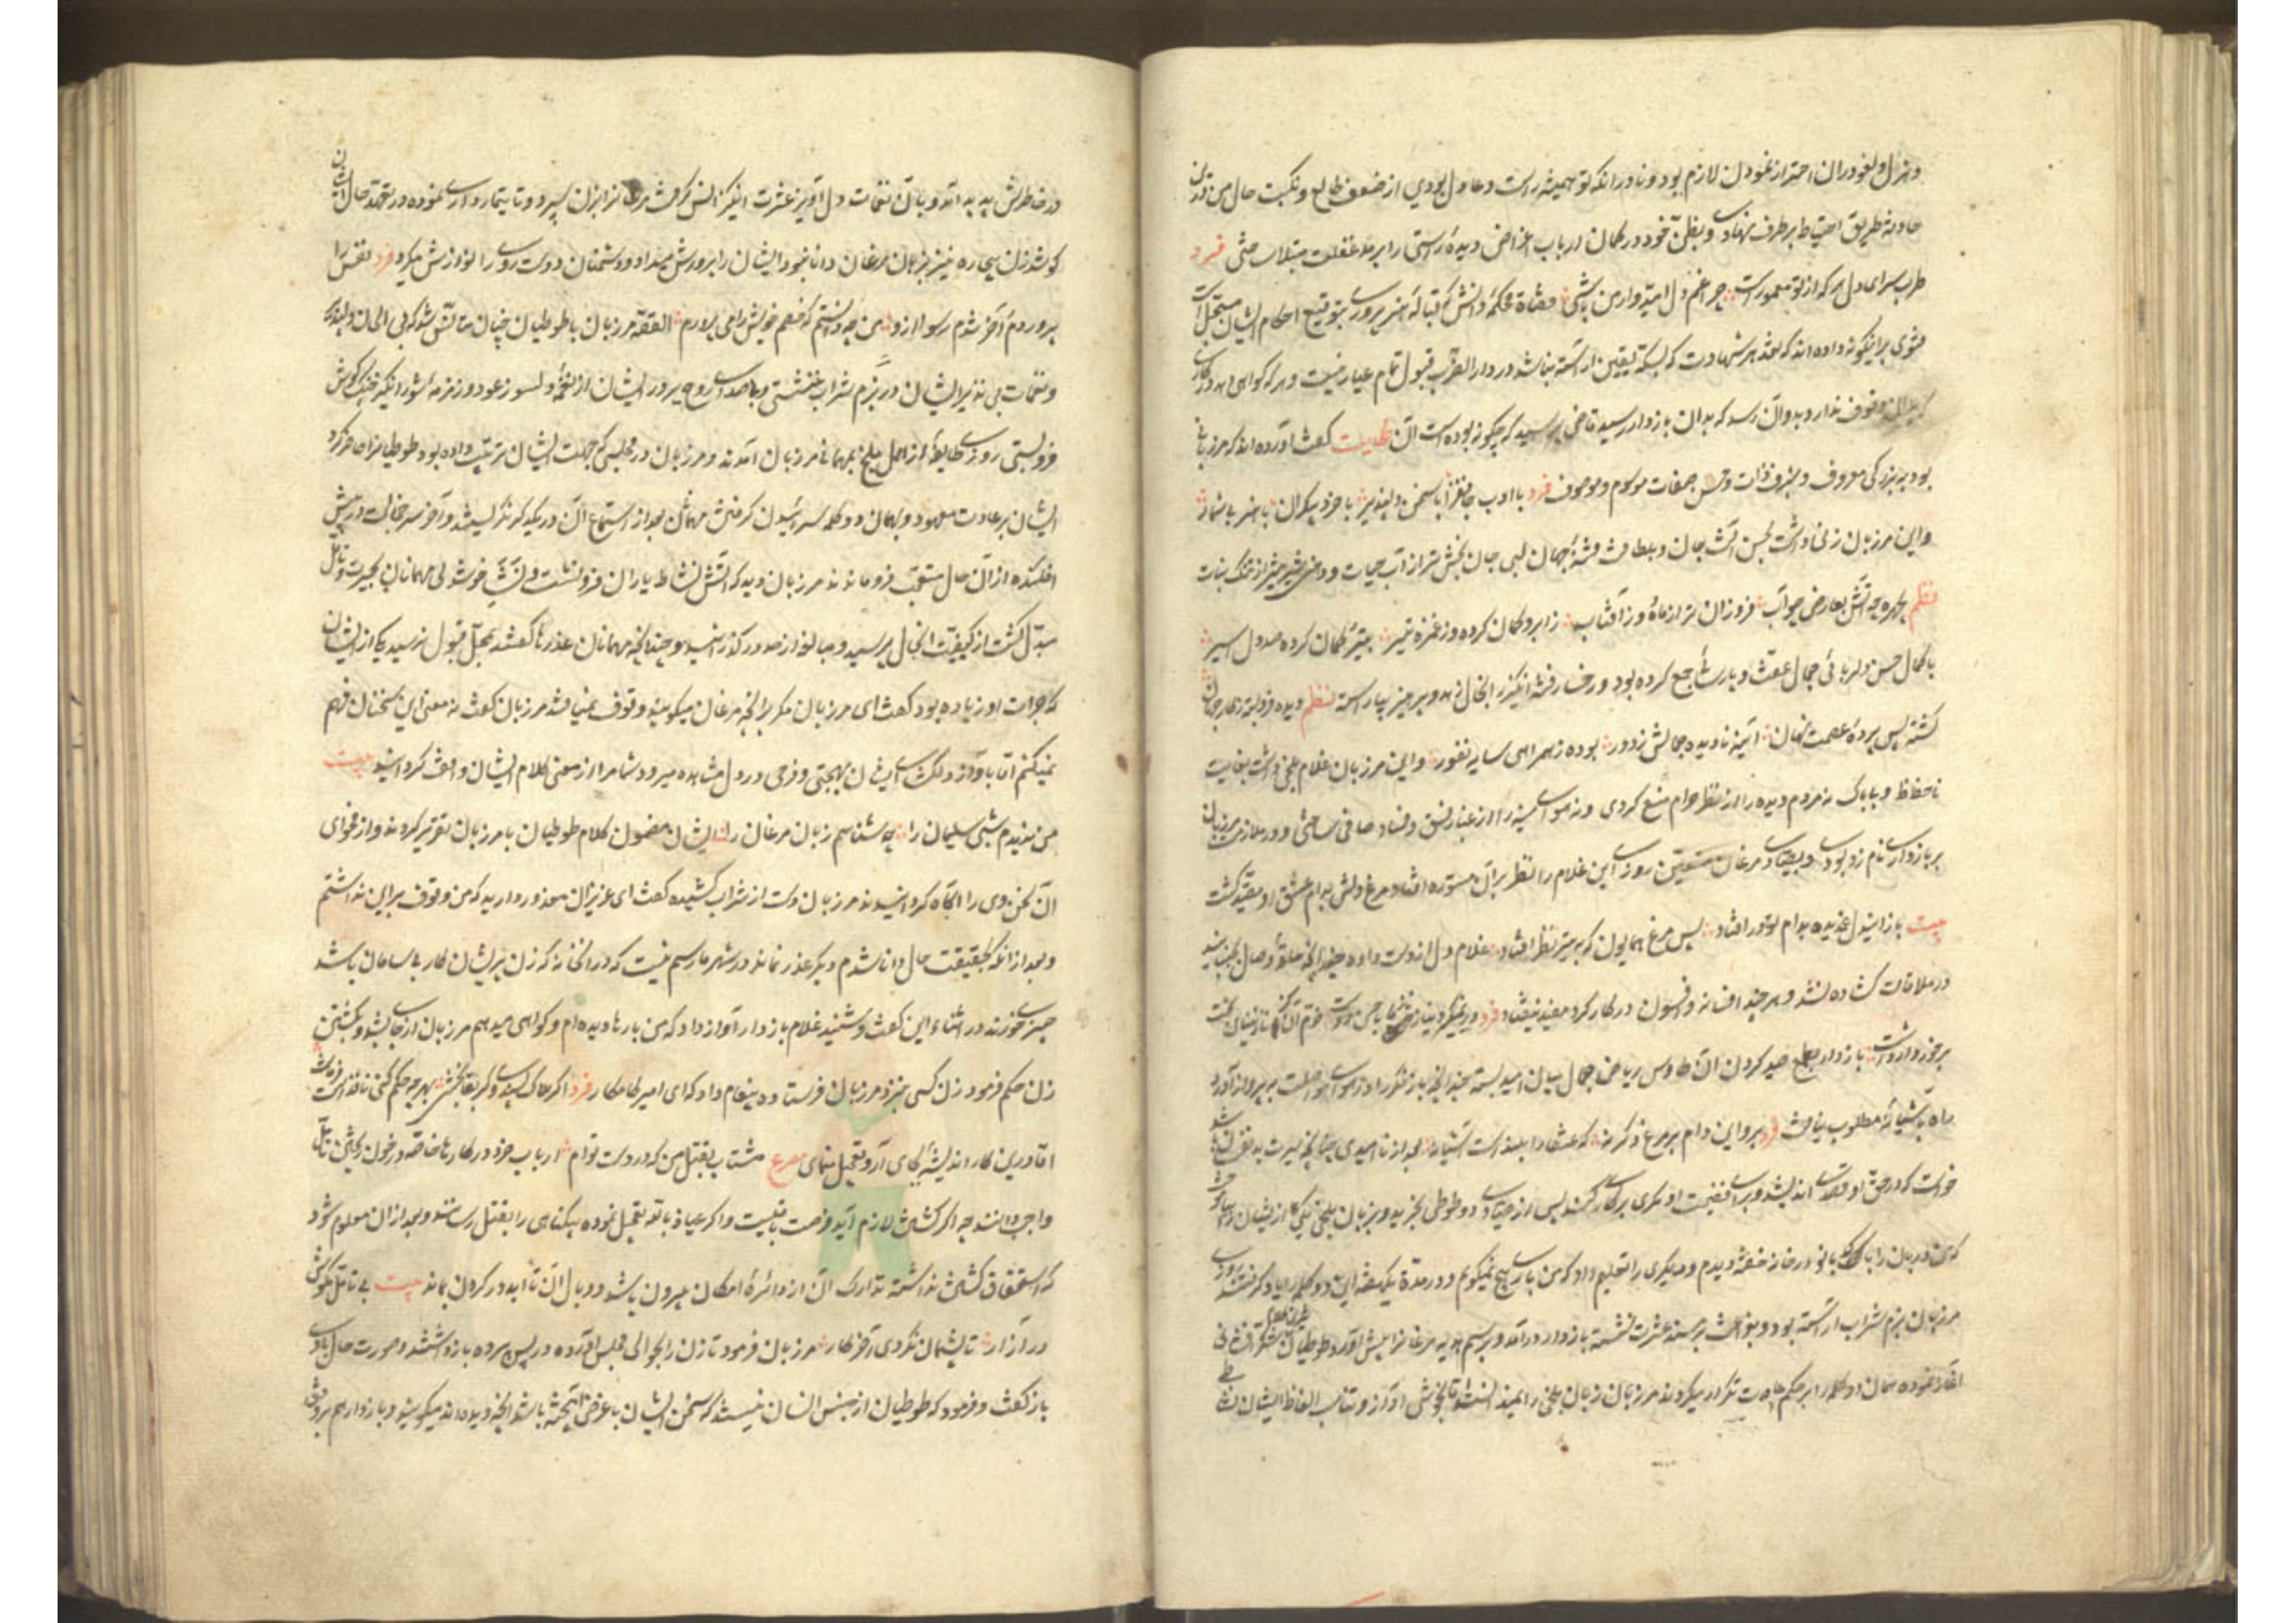 وهزل و لغو در آن احتراز نمودن لازم بود و نادر آنکه تو همیشه راست و عادل بودی از ضعف طالع و نکبت حال من درین
حادثه طریق احتیاط بر طرف نهادی و بظن خود در گمان ارباب اغراض دیده راستی را برمد غفلت مبتلا ساختی فرد
طرب سرای دل هر که از تو معمور است چرا غم دل امیدوار من باشی قضاة محکمه دانش که قباله هنرپروری بتوقیع احکام ایشان مسجل است
فتوی برینگونه داده اند که نقد هر شهادت که بسکه یقین آراسته نباشد در دار الضرب قبول تمام عیار نیست و هر که گواهی دهد در کاری
که بدان وقوف ندارد بدو آن رسد که بدان بازدار رسید قاضی پرسید که چگونه بوده است آن حکایت گفت آورده اند که مرزبانی
بود به بزرگی معروف و بشرف ذات و حسن صفات موسوم و موصوف فرد با ادب جانفزا با سخن دلپذیر با خرد بیکران با هنر بیشمار
و این مرزبان زنی داشت بحسن آشوب جان و بلطافت فتنه جهان لبی جان بخش تر از آب حیات و دهنی شیرین تر از تنگ نبات
نظم چهره چو آتش بعارض چو آب فروزان تر از ماه و ز آفتاب ز ابرو کمان کرده و ز غمزه تیر بتیر و کمان کرده صد دل اسیر
با کمال حسن و دلربائی جمال عفت و پارسائی جمع کرده بود و رخسار فتنه انگیز را بخال زهد و پرهیز بیاراسته نظم دیده فروبسته ز کار جهان
گشته پس پرده عصمت نهان آینه نادیده جمالش ز دور بوده ز همراهی سایه نفور و این مرزبان غلام بلخی داشت بغایت
ناحفاظ و بی باک نه مردم دیده را از نظر حرام منع کردی و نه هوای سینه را از غبار فسق و فساد صافی ساختی و در ملازمت مرزبان
بر بازداری نام زد بودی و بصیادی مرغان متعین روزی این غلام را نظر بر آن مستوره افتاد و مرغ دلش بدام عشق او مقید گشت
بیت باز این دل غمدیده بدام تو در افتاد پس مرغ همایون که بتیر نظر افتاد غلام دل از دست داده هر چند حلقه وصال بجنبانید
در ملاقات گشاده نشد و هر چند افسانه و افسون در کار کرد مفید نیفتاد فرد در نمیگیرد نیاز و ناز ما با حسن دوست خرم آن کز نازنینان بخت
برخوردار داشت بازدار بطمع صید کردن آن طاوس ریاض جمال میان امید بسته چندانچه باز فکر را در هوای مواصلت بپرواز آورد
راه بآشیانه مطلوب نیافت فرد برو این دام بر مرغ دگر نه که عنقا را بلند است آشیانه بعد از نا امیدی چنانچه سیرت بدنفسان باشد
خواست که در حق او قصدی اندیشد و برای فضیحت او مکری بر کار کند پس از صیادی دو طوطی بخرید و بزبان بلخی یکی از ایشان را بیاموخت
که من دربان را با کدبانو در خانه خفته دیدم و دیگری را تعلیم داد که من باری هیچ نمیگویم و در مدة یکهفته این دو کلمه را یاد گرفتند تا روزی
مرزبان بزم شراب آراسته بود و بفراغت بر مسند عشرت نشسته بازدار در آمد و برسم هدیه مرغانرا پیش آورد طوطیان شکر فشانی
آغاز نموده همان دو کلمه را بر حکم عادت تکرار میکردند مرزبان زبان بلخی را نمیدانست اما بخوشی آواز و تناسب الفاظ ایشان نشاطی
در خاطرش پدید آمد و بآن نغمات دل آویز عشرت انگیز انس گرفت مرغانرا بزن سپرد و تا تیمارداری نموده در تعهد حال ایشان
کوشد زن بیچاره نیز بزبان مرغان دانا نبود ایشان را پرورش میداد و دشمنان دوست روی را نوازش میکرد فرد نفس را
بپروردم و آخر شدم رسوا ازو من چه دانستم که خصم خویش را می پرورم القصه مرزبان با طوطیان چنان مستأنس شد که بی الحان دلپذیر
و نغمات بی نظیر ایشان در بزم شراب ننشستی و با صدای روح پرور ایشان از نغمه دلسوز عود و زمزمه شورانگیز چنگ گوش
فروبستی روزی طایفه از اهل بلخ بمهمانی مرزبان آمدند و مرزبان در مجلسی که جهت ایشان ترتیب داده بود طوطیانرا حاضر کرد
ایشان بر عادت معهود و همان دو کلمه سرائیدن گرفتند مهمانان بعد از استماع آن در یکدیگر نگریستند و آخر سر خجالت در پیش
افکنده از آن حال متعجب فروماندند مرزبان دید که آتش نشاط یاران فرونشست و لذت خوشدلی مهمانان بحیرت و تأمل
مبدل گشت از کیفیت الحال پرسید و مبالغه از حد درگذرانید و چندانچه مهمانان عذرها گفتند بمحل قبول نرسید یکی از ایشان
که جرأت او زیاده بود گفت ای مرزبان مگر بر آنچه مرغان میگویند وقوف نمی یابی مرزبان گفت نه معنی این سخنان فهم
نمیکنم اما بآواز دلگشای ایشان بهجتی و فرحی در دل مشاهده میرود شما مرا از معنی کلام ایشان واقف گردانید بیت
من ندیدم شبی سلیمان را چه شناسم زبان مرغان را ایشان مضمون کلام طوطیان با مرزبان تقریر کردند و از فحوای
آن سخن وی را آگاه گردانیدند مرزبان دست از شراب کشیده گفت ای عزیزان معذور دارید که من وقوف بر این نداشتم
و بعد از آنکه بحقیقت حال دانا شدم دیگر عذر نماند در شهر ما رسم نیست که در آنخانه که زن پریشان کار بی سامان باشد
چیزی خورند در اثناء این گفت و شنید غلام بازدار آواز داد که من بارها دیده ام و گواهی میدهم مرزبان از جا بشد و بکشتن
زن حکم فرمود زن کسی بنزد مرزبان فرستاده پیغام داد که ای امیر کامکار فرد اگر هلاک پسندی و گر بقا بخشی بهر چه حکم کنی نافذ است فرمانت
اما درین کار اندیشه بجای آر و تعجیل منمای مصرع مشتاب بقتل من که در دست توام ارباب خرد در کارها خاصه در خون ریختن تأمل
واجب دانند چه اگر کشتن لازم آید فرصت باقیست و اگر عیاذ بالله تعجیل نموده بیگناهی را بقتل رسانند و بعد از آن معلوم شود
که استحقاق کشتن نداشته تدارک آن از دائره امکان بیرون باشد و وبال آن تا ابد در گردن بماند بیت بی تأمل مکوش
در آزار تا پشیمان نگردی آخر کار مرزبان فرمود تا زن را بحوالی مجلس آورده در پس پرده بازداشتند و صورت حال با وی
باز گفت و فرمود که طوطیان از جنس انسان نیستند که سخن ایشان با غرض آمیخته باشد آنچه دیده اند میگویند و بازدار هم بر وفق